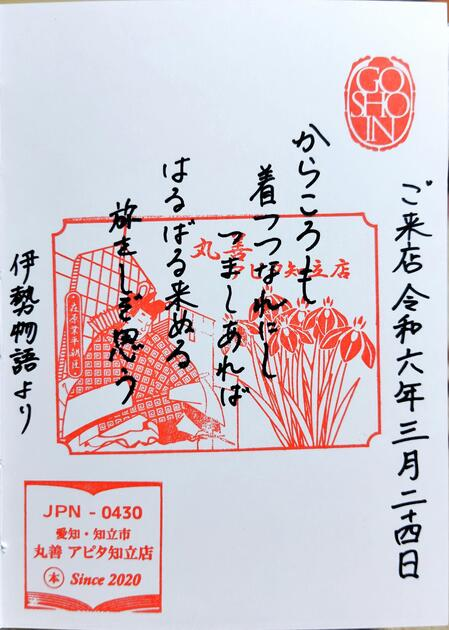 GO
SHO
IN
ご来店 令和六年三月二十四日
からころも
着つつなれにし
つましあれば
はるばる来ぬる
旅をしぞ思う
伊勢物語より
丸善
アピタ知立店
在原業平朝臣
JPN - 0430
愛知・知立市
丸善 アピタ知立店
本 Since 2020